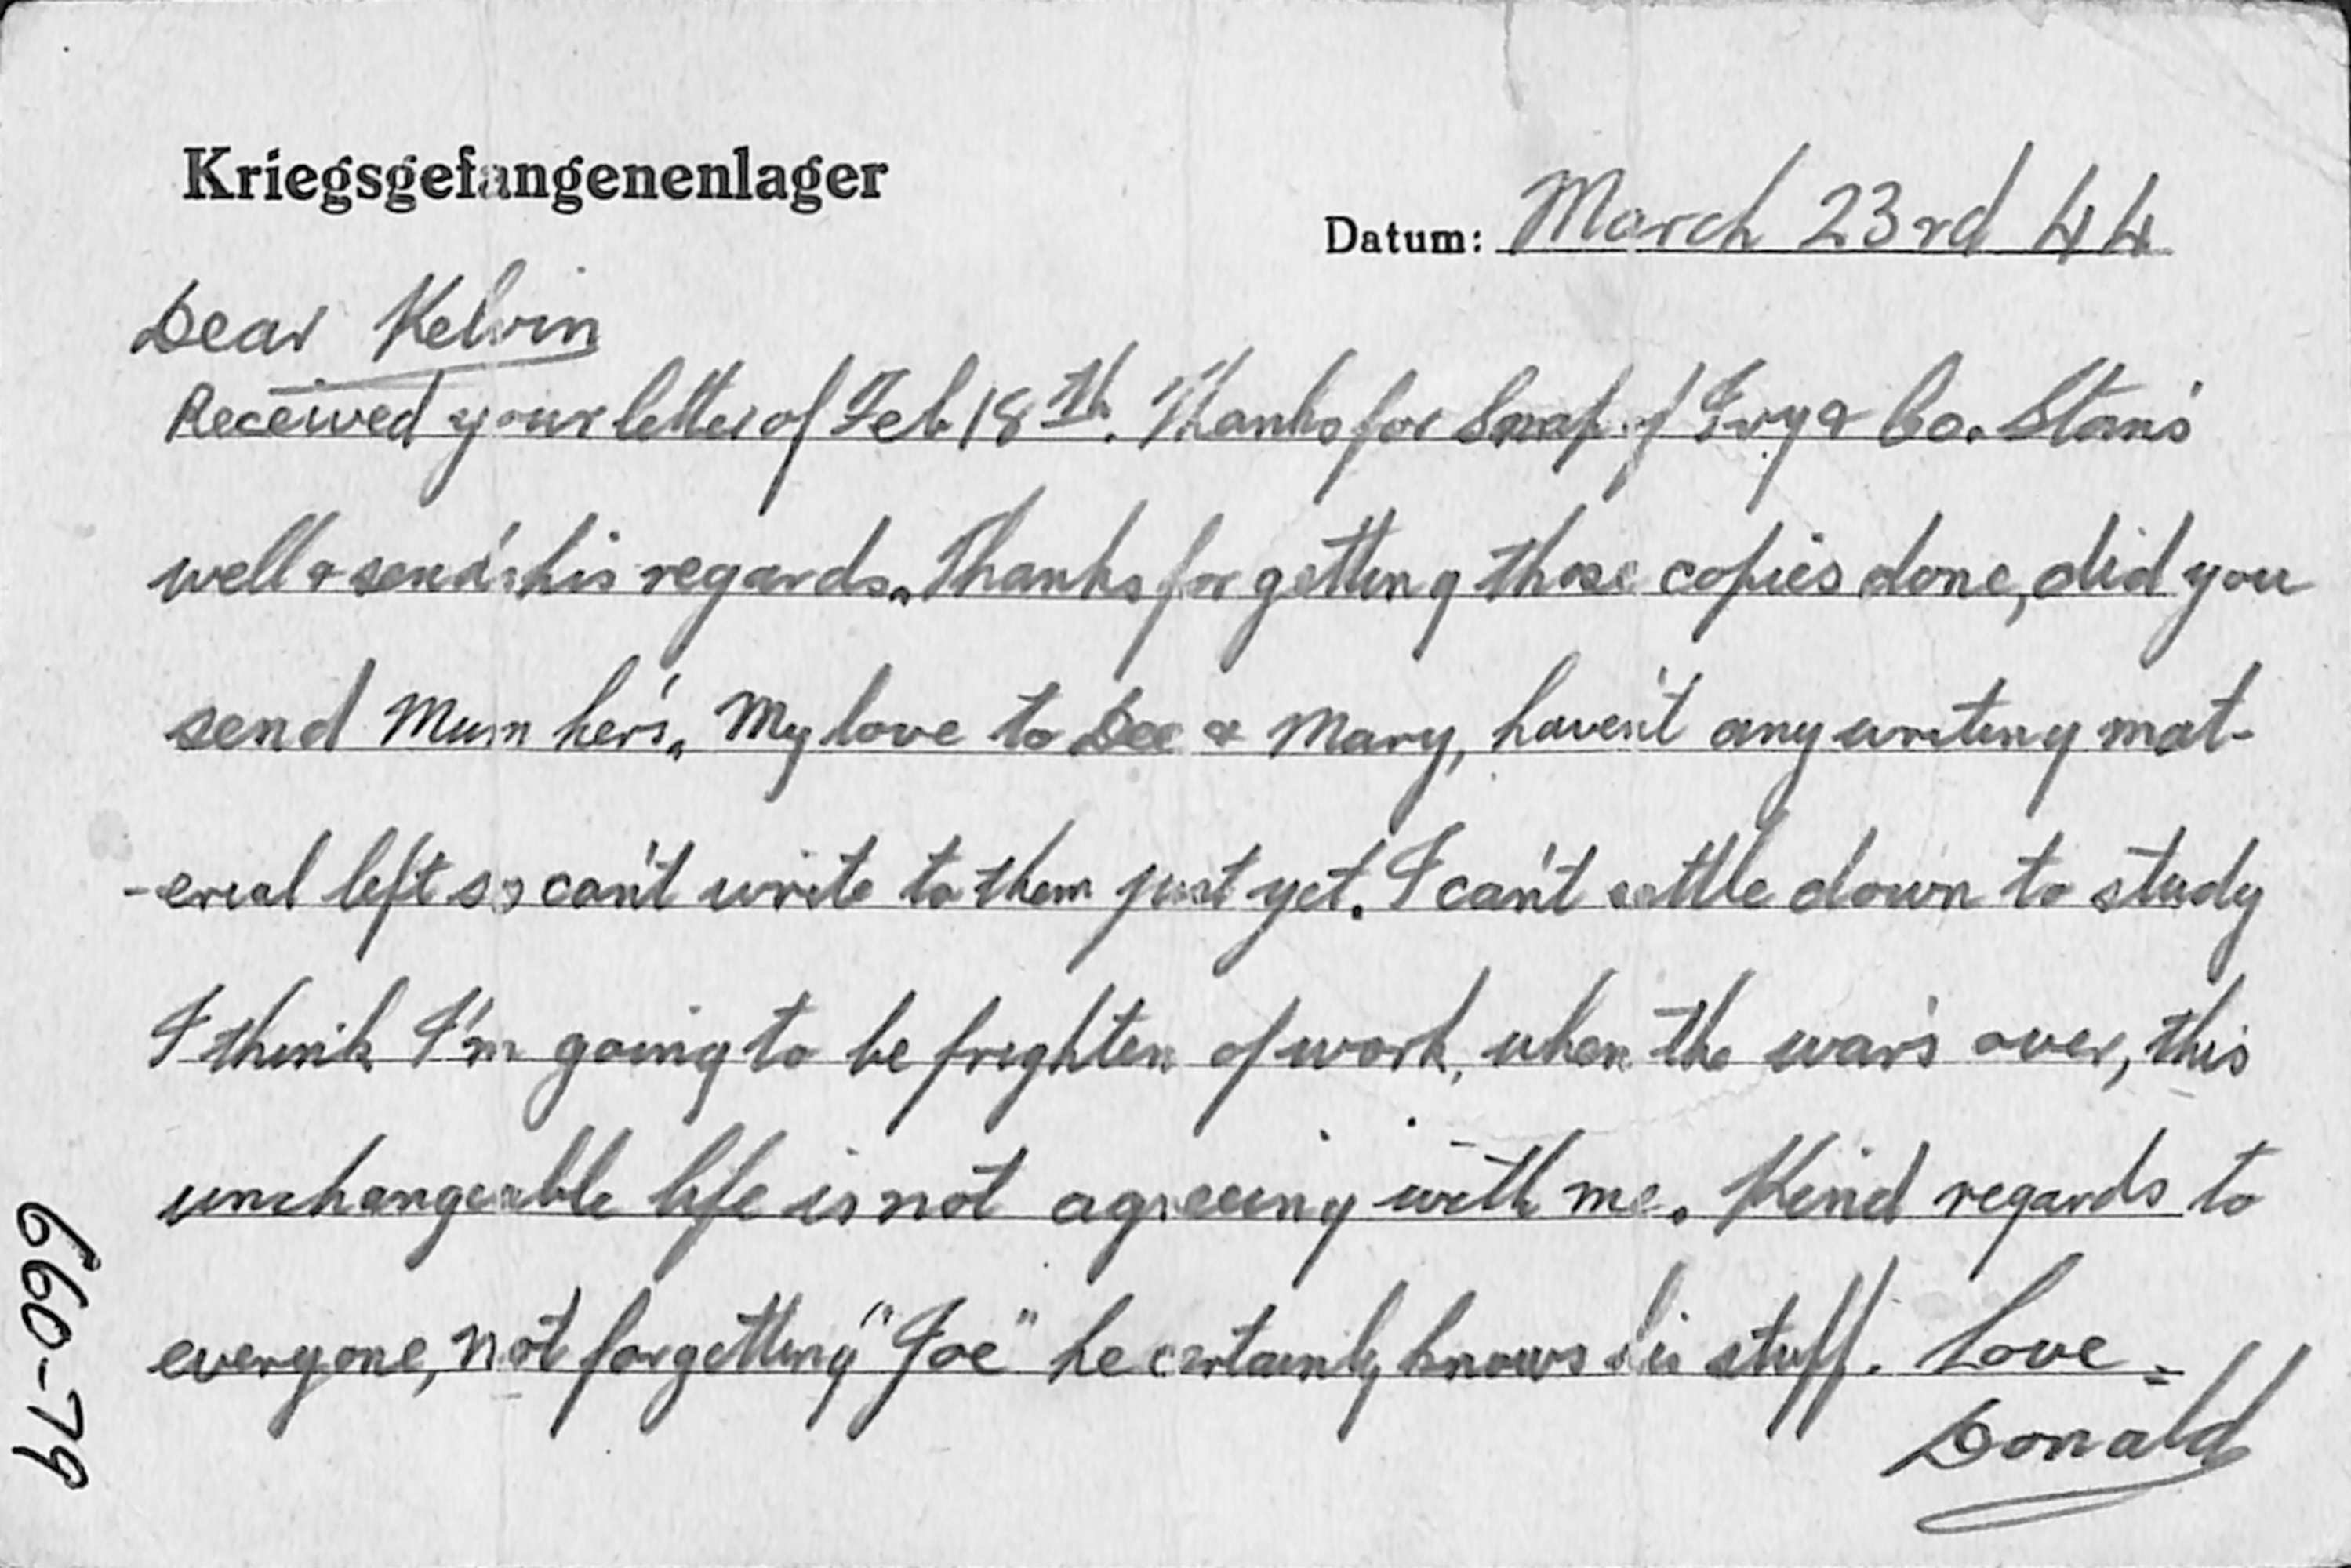 Kriegsgefangenenlager
Datum: March 23rd 44
Dear Kelvin
Received your letter of Feb 18th. Thanks for snap of Ivy & Co. Stan's
well & send's his regards. Thanks for getting those copies done, did you
send Mum her's. My love to Dee & Mary, haven't any writing mat-
-erial left so can't write to them just yet. I can't settle down to study
I think I'm going to be frighten of work, when the war's over, this
unchangeable life is not agreeing with me. Kind regards to
everyone, not forgetting "Joe" he certainly knows his stuff. Love =
Donald
660-79